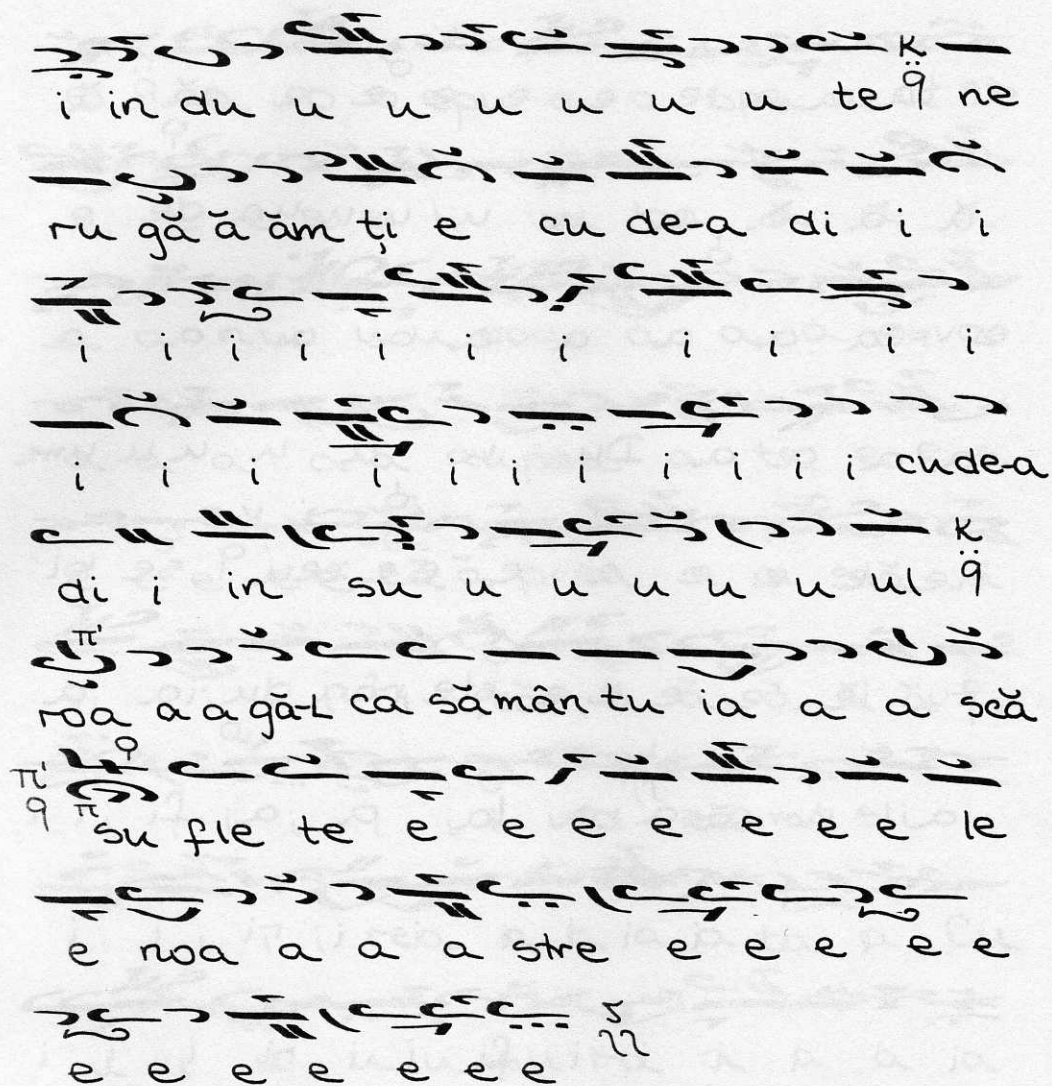 i in du u u u u u u te ne
ru gă ă ăm ți e cu de-a di i i
i i i i i i i i i i i
i i i i i i i i i i i cu de-a
di i in su u u u u u ul
roa a a gă-L ca să mân tu ia a a scă
su fle te e e e e e e e le
e noa a a a stre e e e e e
e e e e e e e